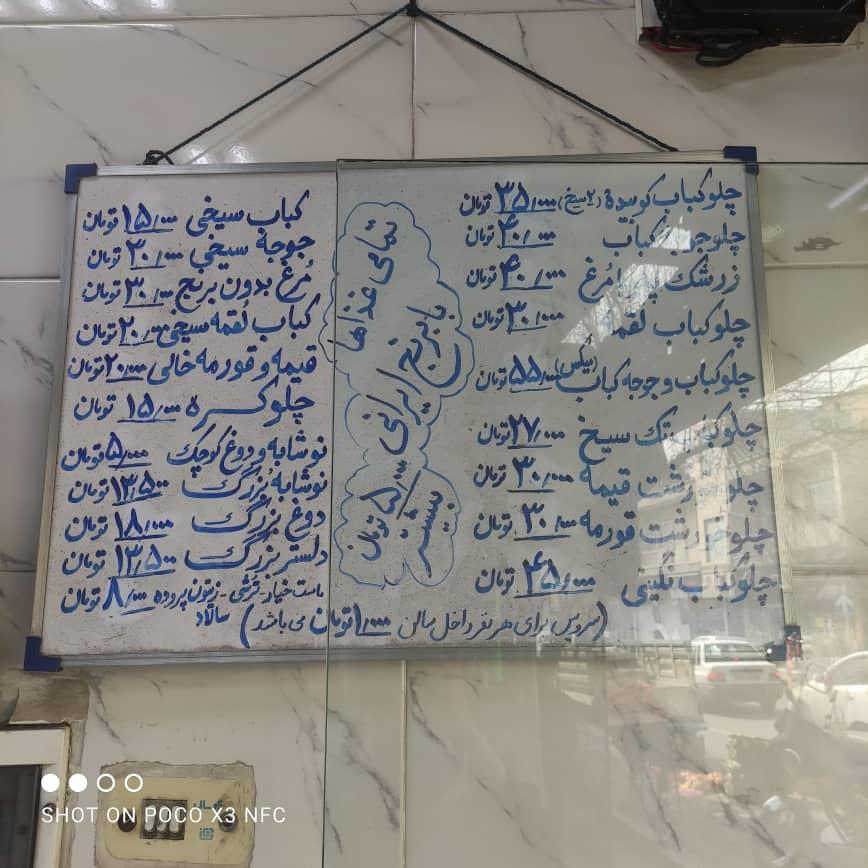 چلوکباب کوبیده (۲ سیخ) ۳۵/۰۰۰ تومان
چلوجوجه کباب ۴۰/۰۰۰ تومان
زرشک پلو با مرغ ۴۰/۰۰۰ تومان
چلوکباب لقمه ۳۰/۰۰۰ تومان
چلوکباب و جوجه کباب (میکس) ۵۵/۰۰۰ تومان
چلوکباب تک سیخ ۲۷/۰۰۰ تومان
چلوخورشت قیمه ۳۰/۰۰۰ تومان
چلوخورشت قورمه ۳۰/۰۰۰ تومان
چلوکباب نگینی ۴۵/۰۰۰ تومان
(سرویس برای هر نفر داخل سالن ۱/۰۰۰ تومان می باشد)
تمامی غذاها
با برنج ایرانی
۵/۰۰۰ تومان
بیشتر
کباب سیخی ۱۵/۰۰۰ تومان
جوجه سیخی ۳۰/۰۰۰ تومان
مُرغ بدون برنج ۳۰/۰۰۰ تومان
کباب لُقمه سیخی ۲۰/۰۰۰ تومان
قیمه و قورمه خالی ۲۰/۰۰۰ تومان
چلوکره ۱۵/۰۰۰ تومان
نوشابه و دوغ کوچک ۵/۰۰۰ تومان
نوشابه بُزرگ ۱۳/۵۰۰ تومان
دوغ بزرگ ۱۸/۰۰۰ تومان
دلستر بزرگ ۱۳/۵۰۰ تومان
ماست خیار - ترشی - زیتون پرورده ۸/۰۰۰ تومان
سالاد
SHOT ON POCO X3 NFC